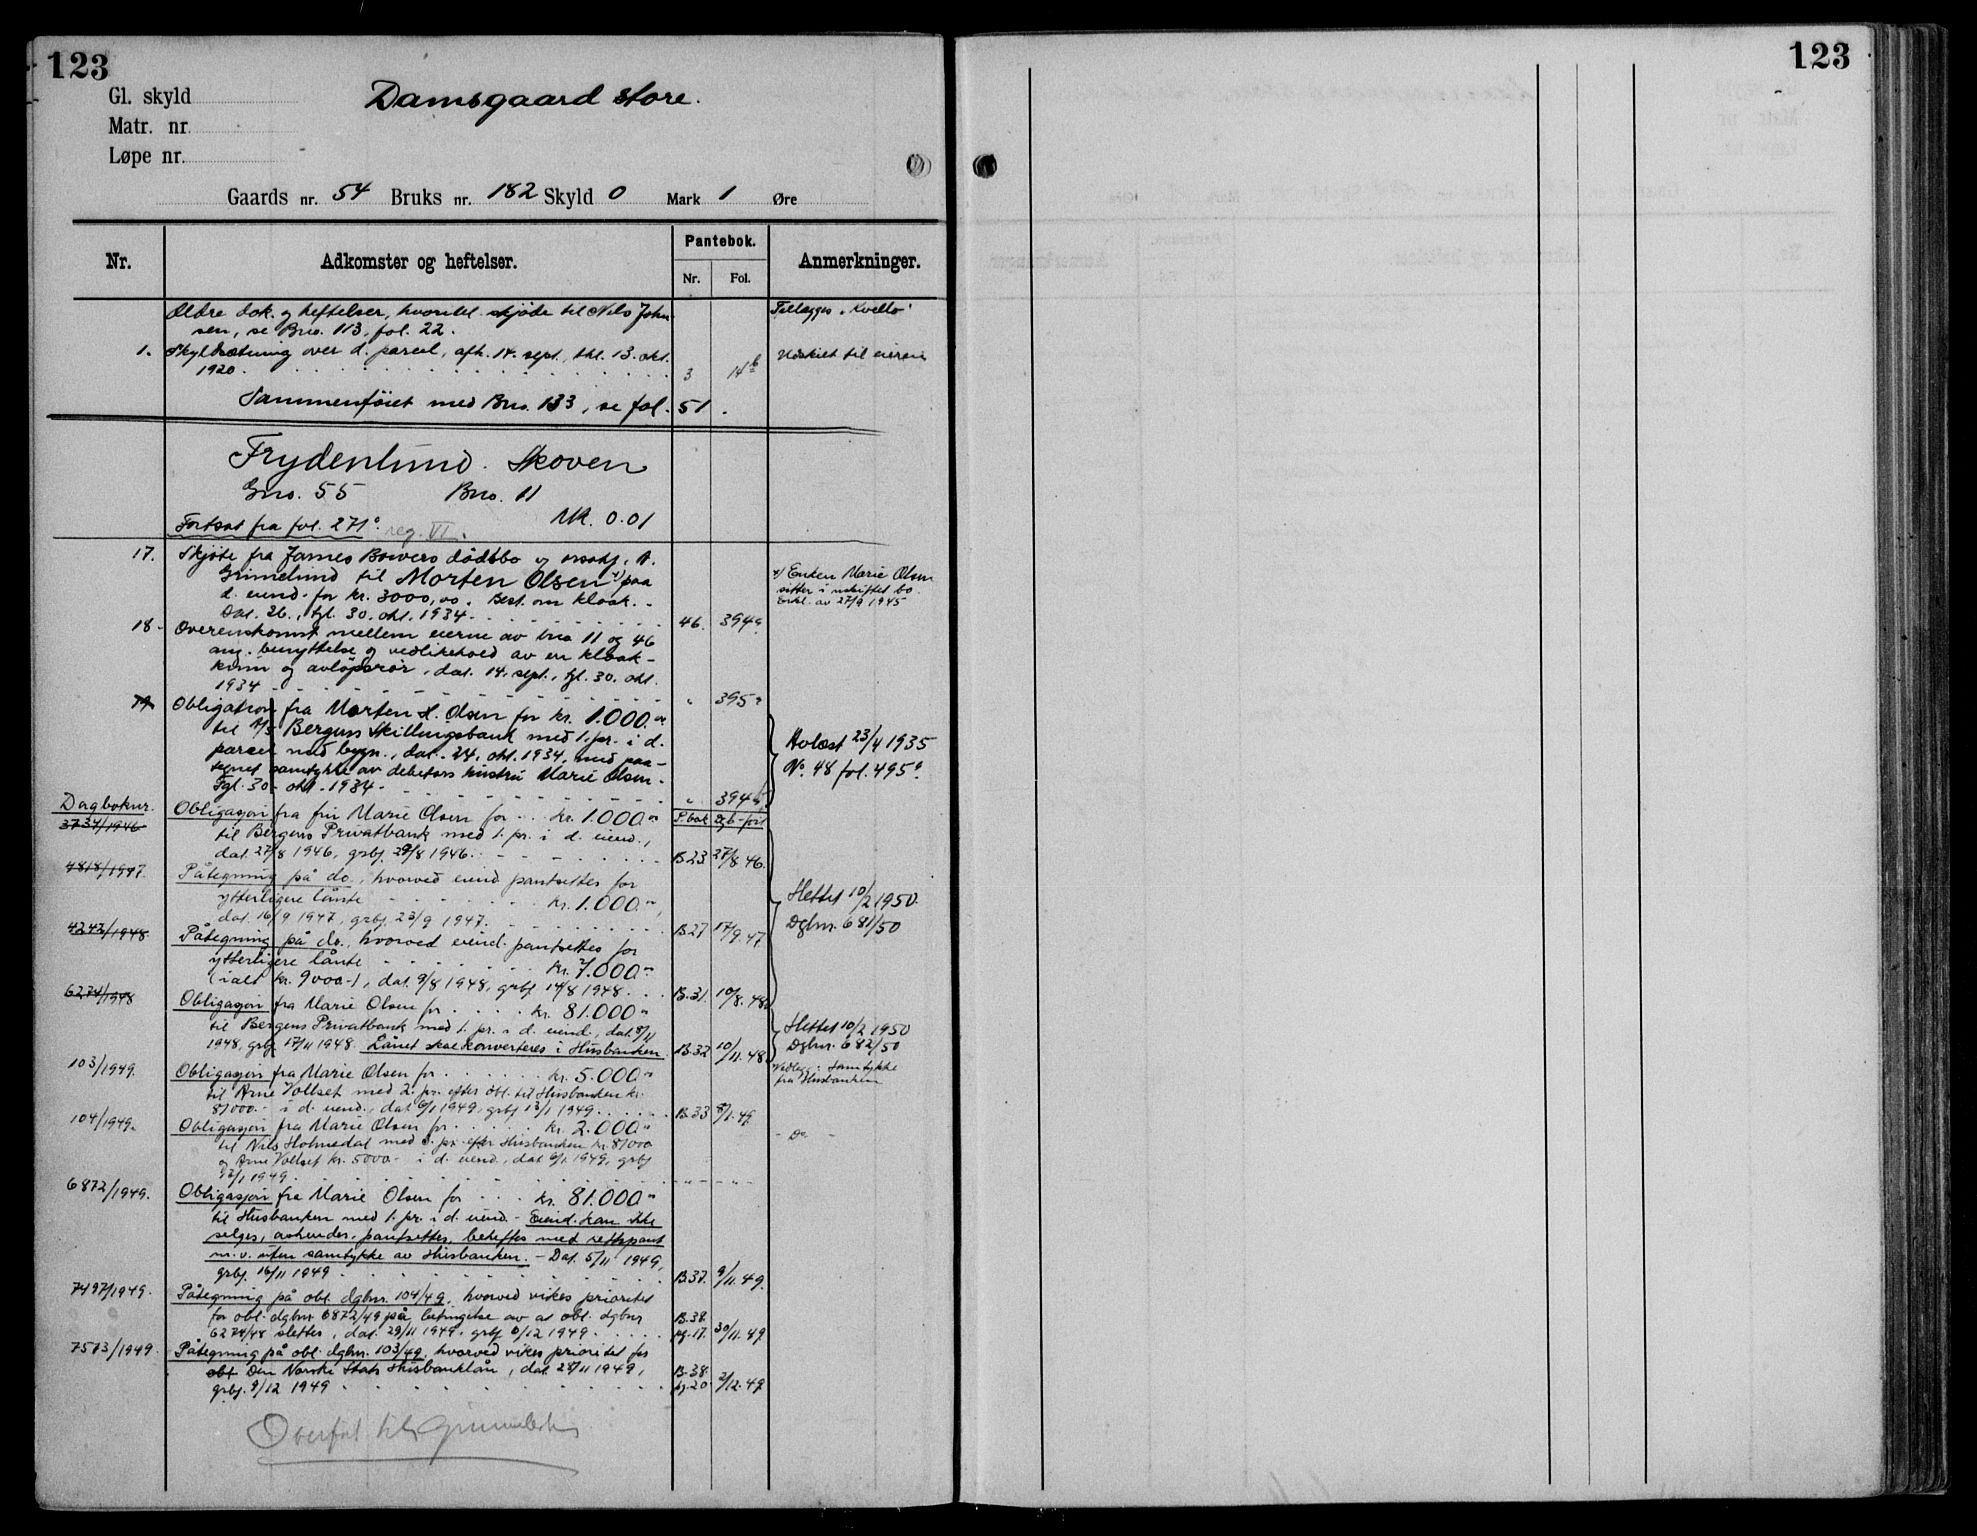 123
Gl. skyld
Matr. nr.
Løpe nr.
Damsgaard store.
Gaards nr. 54 Bruks nr. 182 Skyld 0 Mark 1 Øre
Nr. Adkomster og heftelser. Pantebok. Nr. Fol. Anmerkninger.
Ældre dok. og heftelser, hvoriblt. skjøde til Nils John Tillægges
sen, se Bno. 113, fol. 22.
1. Skyldsætning over d. parcel, afh. 14. sept., thl. 13. okt. Utskilt til eieren
1920. 3 14b
Sammenføiet med Bno. 133, se fol. 51.
Frydenlund. Skoven
Gno. 55 Bno. 11
Mk. 0.01
Fortsat fra fol. 271c. reg. VI.
17. Skjøte fra James Bowers dødsbo v/ A.
Grimelund til Morten Olsen x) paa x) Enken Marie Olsen
d. eiend. for kr. 3000,00. Best. om kloak. sitter i uskiftet bo.
Dat. 26., tgl. 30. okt. 1934. 46. 394a Erkl. av 27/9 1945
18. Overenskomst mellem eierne av bno 11 og 46
ang. benyttelse og vedlikehold av en kloak-
kum og avløpsrør, dat. 14. sept., tgl. 30. okt.
1934 " 395a
19. Obligation fra Morten H. Olsen for kr. 1.000.00
til A/S Bergens Skillingsbank med 1. pr. i d.
parcel med bygn., dat. 24. okt. 1934, med paa- Avlæst 23/4 1935
tegnet samtykke av debitors hustru Marie Olsen. No. 48 fol. 495a.
Tgl. 30. okt. 1934. " 394b
Dagboknr.
3734/1946 Obligasjon fra fru Marie Olsen for kr. 1.000.00 P.bok Dgb-ført
til Bergens Privatbank med 1. pr. i d. eiend.,
dat. 27/8 1946, grbf. 29/8 1946. B 23 27/8 46.
4818/1947. Påtegning på do., hvorved eiend pantsettes for
ytterligere lånte kr. 1.000.00, Slettet 10/2 1950.
dat. 16/9 1947, grbf. 23/9 1947. B 27 17/9. 47 Dgbnr. 681/50
4242/1948 Påtegning på do., hvorved eiend. pantsettes for
ytterligere lånte kr. 7.000.00
(ialt kr. 9000.-), dat. 9/8 1948, grbf. 14/8 1948. B.31. 10/8. 48.
6274/1948 Obligasjon fra Marie Olsen for kr. 81.000.00
til Bergens Privatbank med 1. pr. i d. eiend., dat. 8/11 Slettet 10/2 1950
1948, grbf 17/11 1948. Lånet skal konverteres i Husbanken. B 32 10/11. 48 Dgbnr. 682/50
103/1949. Obligasjon fra Marie Olsen for kr. 5.000.00 Vedlegg: Samtykke
til Arne Vollset med 2. pr. efter obl. til Husbanken kr. fra Husbanken
81000.- i d. eiend., dat 6/1 1949, grbf 13/1 1949. B.33 8/1. 49.
104/1949. Obligasjon fra Marie Olsen for kr. 2.000.00
til Nils Holmedal med 3. pr. efter Husbanken kr. 81000 - Do -
og Arne Vollset kr. 5000.- i d. eiend., dat 6/1 1949, grbf
13/1 1949
6872/1949. Obligasjon fra Marie Olsen for kr. 81.000.00
til Husbanken med 1. pr. i d. eiend. - Eiend. kan ikke
selges, avhendes, pantsettes, beheftes med rettspant
m.v. uten samtykke av Husbanken. - Dat. 5/11 1949,
grbf. 16/11 1949 B.37. 9/11. 49.
7497/1949. Påtegning på obl. dgbnr. 104/49, hvorved vikes prioritet
for obl. dgbnr 6872/49 på betingelse av at obl. dgbnr B.38.
6274/48 slettes, dat. 29/11 1949, grbf. 6/12 1949. pg. 17. 30/11. 49.
7573/1949. Påtegning på obl. dgbnr. 103/49, hvorved vikes prioritet for
obl Den Norske Stats Husbanklån, dat. 28/11 1949, B.38.
grbf. 9/12 1949 pg. 20 2/12. 49.
Overført til
123